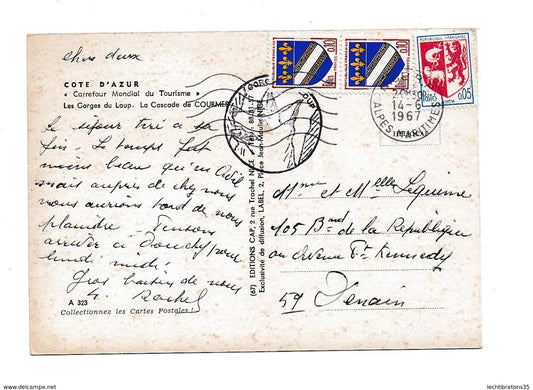 Chers deux
COTE D'AZUR
"Carrefour Mondial du Tourisme"
Les Gorges du Loup. La Cascade de COURMES
Le séjour tire à sa
fin. Le temps fut
moins beau qu'en Avril
mais auprès de chez nous
nous aurions tord de nous
plaindre. Pensons
arriver à pour
lundi midi.
Gros baisers de nous
4. Rachel
A 323
Collectionnez les Cartes Postales !
(67) EDITIONS CAP, 2 rue Trachel NICE
Exclusivité de diffusion, LABEL, 2, Place Jean-Moulin NICE
REPUBLIQUE FRANÇAISE
0,10
0,10
0,05
14-6
1967
ALPES MARITIMES
Mme et Melle Lequime
105 Bard de la République
ou Avenue Pt Kennedy
59 Denain
www.delcampe.net
lechtibretons35